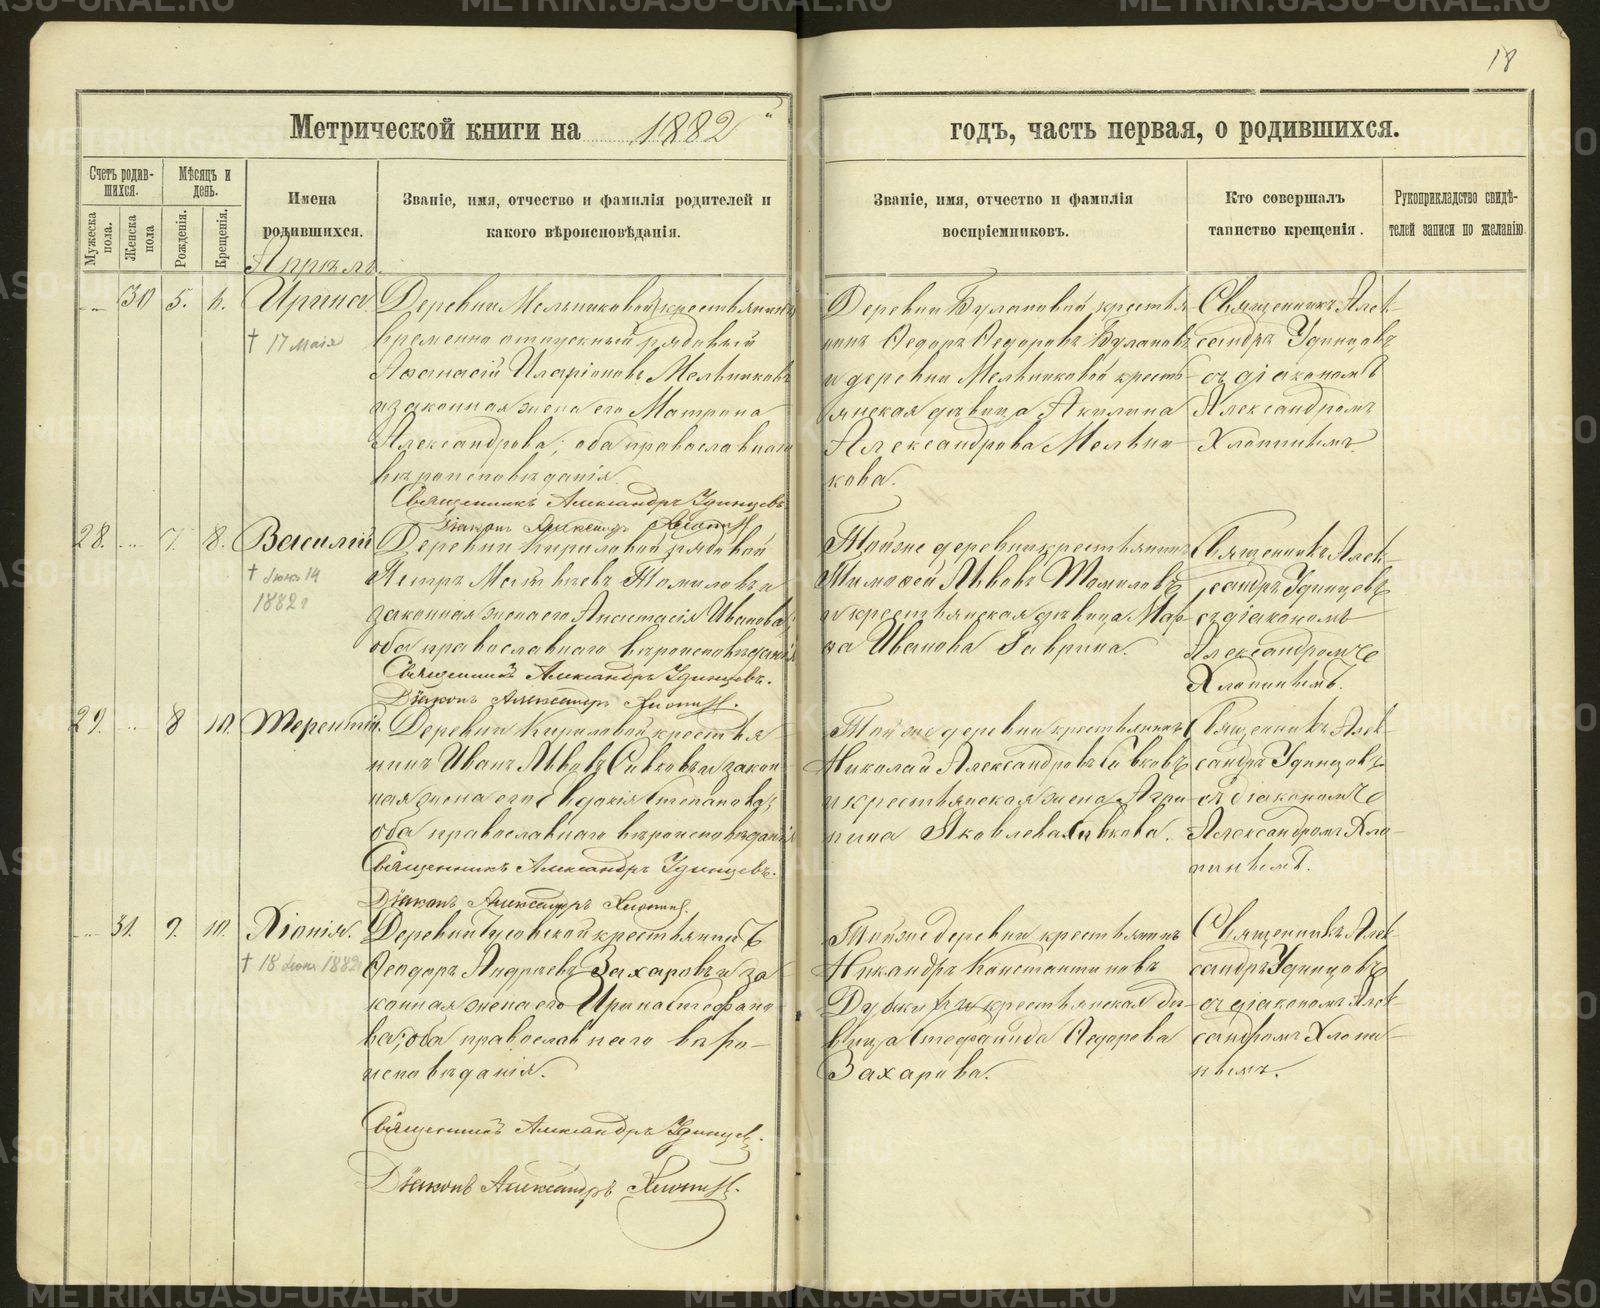 18
Метрической книги на 1882
годъ, часть первая, о родившихся.
Счетъ родив-
шихся.
Мужеска
пола.
Женска
пола
Мѣсяцъ и
день.
Рожденія.
Крещенія.
Имена
родившихся.
Званіе, имя, отчество и фамилія родителей и
какого вѣроисповѣданія.
Званіе, имя, отчество и фамилія
воспріемниковъ.
Кто совершалъ
таинство крещенія.
Рукоприкладство свидѣ-
телей записи по желанію.
Апрѣль.
30 5. 6. Ирина.
† 17 мая
Деревни Мельниковой крестьянинъ
временно отпускный рядовый
Аѳанасій Иларіоновъ Мельниковъ
и законная жена его Матрона
Александрова; оба православнаго
вѣроисповѣданія.
Священникъ Александръ Удинцевъ.
Діаконъ Александръ
Деревни Булановой крестья
нинъ Ѳедоръ Ѳедоровъ Булановъ
и деревни Мельниковой кресть-
янская дѣвица Акилина
Александрова Мельни-
кова.
Священникъ Алек-
сандръ Удинцовъ
съ діакономъ
Александромъ
28. 7. 8. Василій
† Іюня 14
1882 г
Деревни Кириловой рядовой
Петръ Матвѣевъ Томиловъ и
законная жена его Анастасія Иванова;
оба православнаго вѣроисповѣданія
Священникъ Александръ Удинцевъ.
Діаконъ Александръ
Той же деревни крестьянинъ
Тимоѳей Львовъ Томиловъ
и крестьянская дѣвица Мар-
ѳа Иванова Гаврина.
Священникъ Алек-
сандръ Удинцевъ
съ діакономъ
Александромъ
29. 8 10. Терентій.
Деревни Кириловой крестья
нинъ Иванъ Львовъ Сивковъ и закон-
ная жена его Евдокія Степанова;
оба православнаго вѣроисповѣданія
Священникъ Александръ Удинцевъ.
Діаконъ Александръ
Той же деревни крестьянинъ
Николай Александровъ Сивковъ
и крестьянская жена Агри-
пина Яковлева Сивкова.
Священникъ Алек-
сандръ Удинцовъ
съ діакономъ
Александромъ
31. 9. 10. Хіонія.
† 18 Іюня 1882 г
Деревни крестьянинъ
Ѳеодоръ Андреевъ Захаровъ и за
конная жена его Ирина Стефано-
ва; оба православнаго вѣро-
исповѣданія.
Священникъ Александръ Удинцевъ.
Діаконъ Александръ
Той же деревни крестьянинъ
Никандръ Константиновъ
и крестьянская дѣ-
вица Стефанида Ѳедорова
Захарова.
Священникъ Алек-
сандръ Удинцовъ
съ діакономъ Алек-
сандромъ